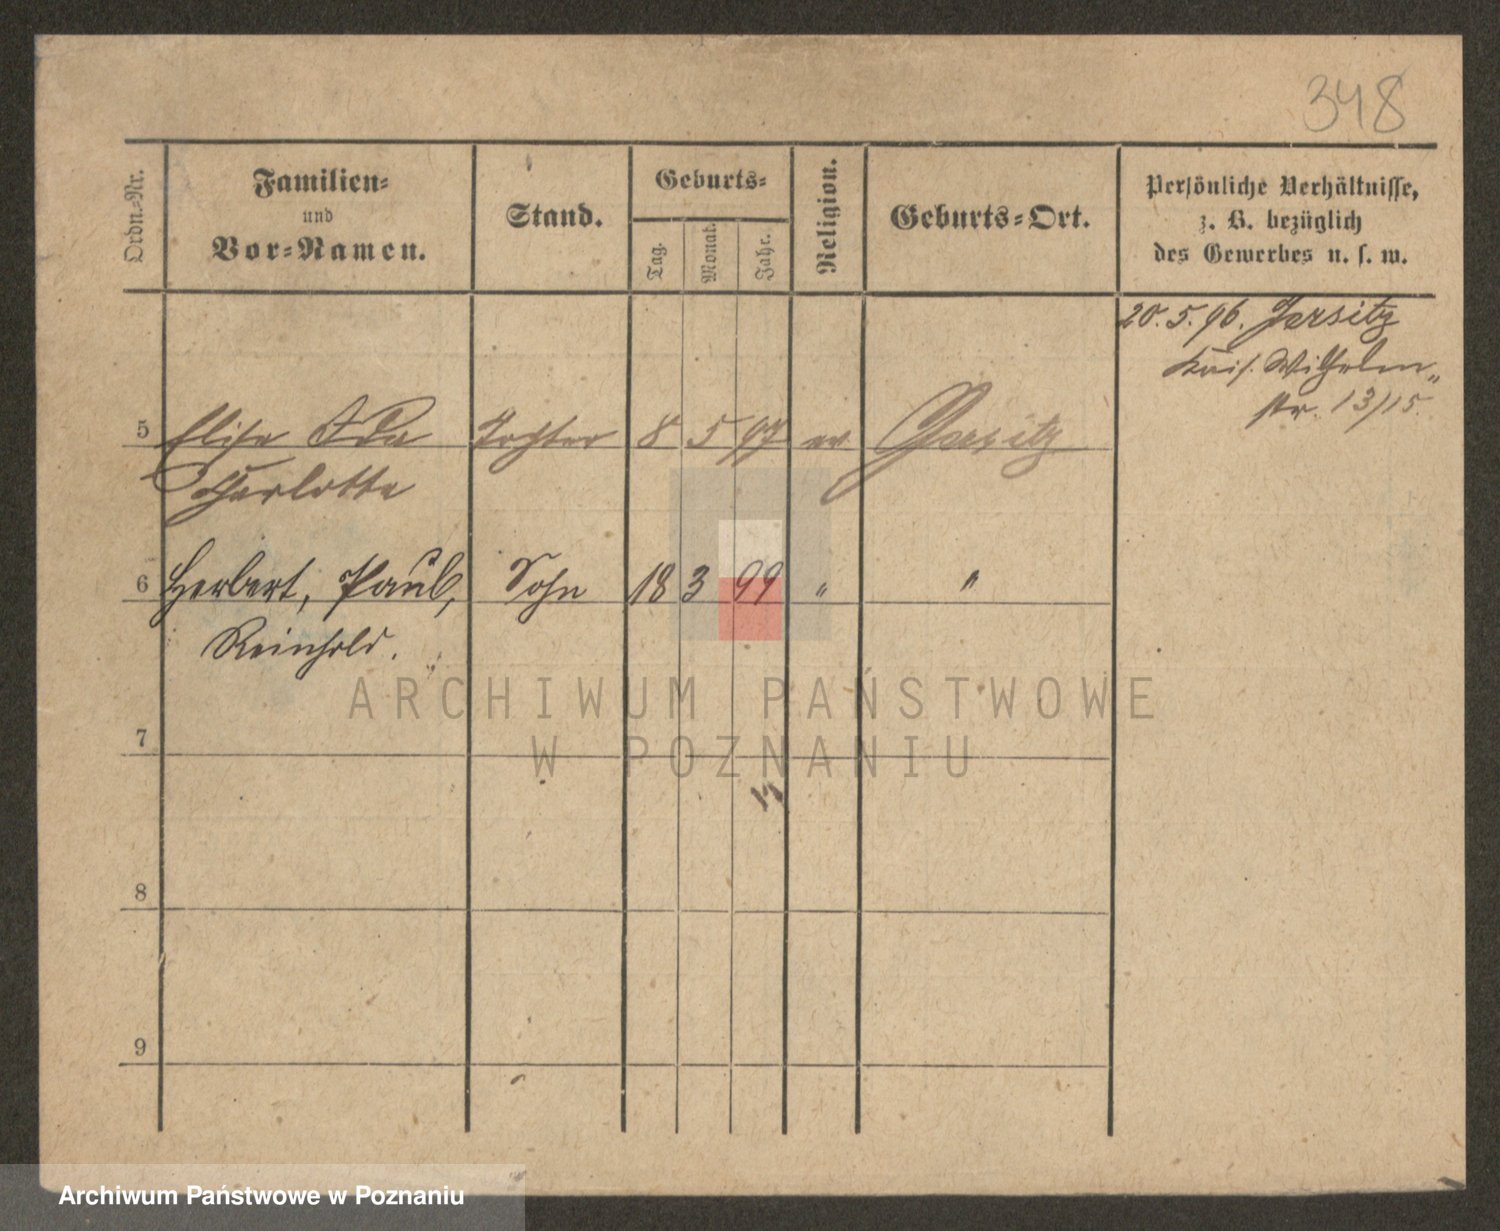 348
Ordn.-Nr.
Familien-
und
Vor-Namen.
Stand.
Geburts-
Tag.
Monat.
Jahr.
Religion.
Geburts-Ort.
Persönliche Verhältnisse,
z. B. bezüglich
des Gewerbes u. s. w.
20. 5. 96. Jersitz
Kais. Wilhelm-
str. 13/15.
5 Elise Ida Tochter 8 5 97 ev Jersitz
Charlotte
6 Herbert, Paul, Sohn 18 3 99 " "
Reinhold.
7
8
9
ARCHIWUM PAŃSTWOWE
W POZNANIU
Archiwum Państwowe w Poznaniu